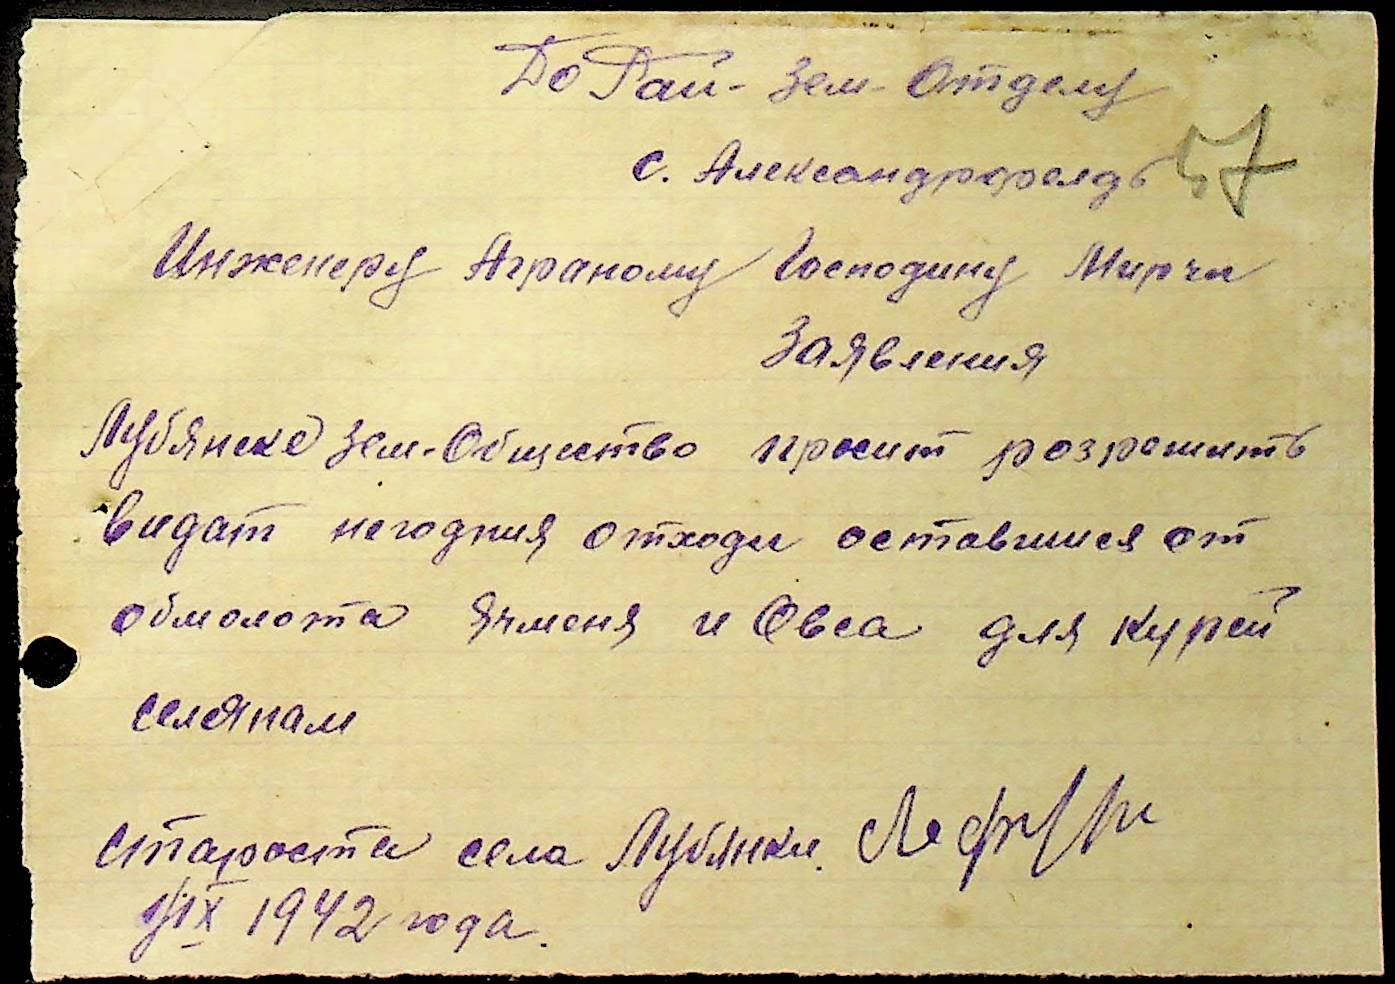 До Рай-Зем-Отделу
с. Александрофелдъ 57
Инженеру Аграному Господину Мирчи
Заявления
Лубянске Зем-Общество просит розрешить
видат негодния отходи оставшися от
обмолота Ячменя и Овса для курей
селянам
Староста села Лубянки.
1/IX 1942 года.